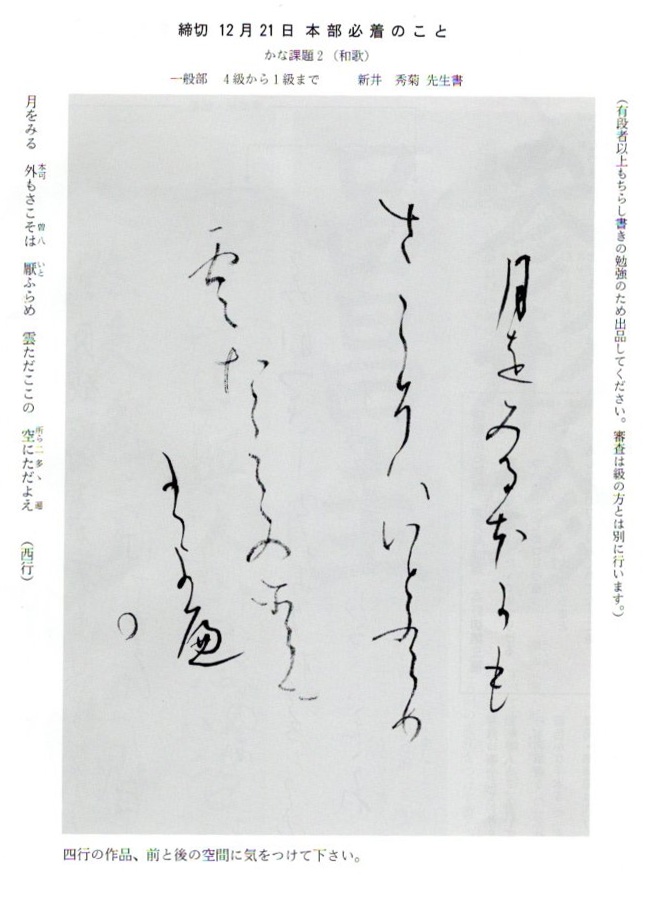 締切 12月21日 本部必着のこと
かな課題2（和歌）
一般部 4級から1級まで 新井 秀菊 先生書
（有段者以上もちらし書きの勉強のため出品してください。審査は級の方とは別に行います。）
月をみる本可も
さこ曽八いとふらめ
雲たゝこゝの所ら二
多ゝよ遍
月をみる 外もさこそは 厭ふらめ 雲ただここの 空にただよえ （西行）
本可 曽八 いと 所ら二 多ゝ 遍
四行の作品、前と後の空間に気をつけて下さい。